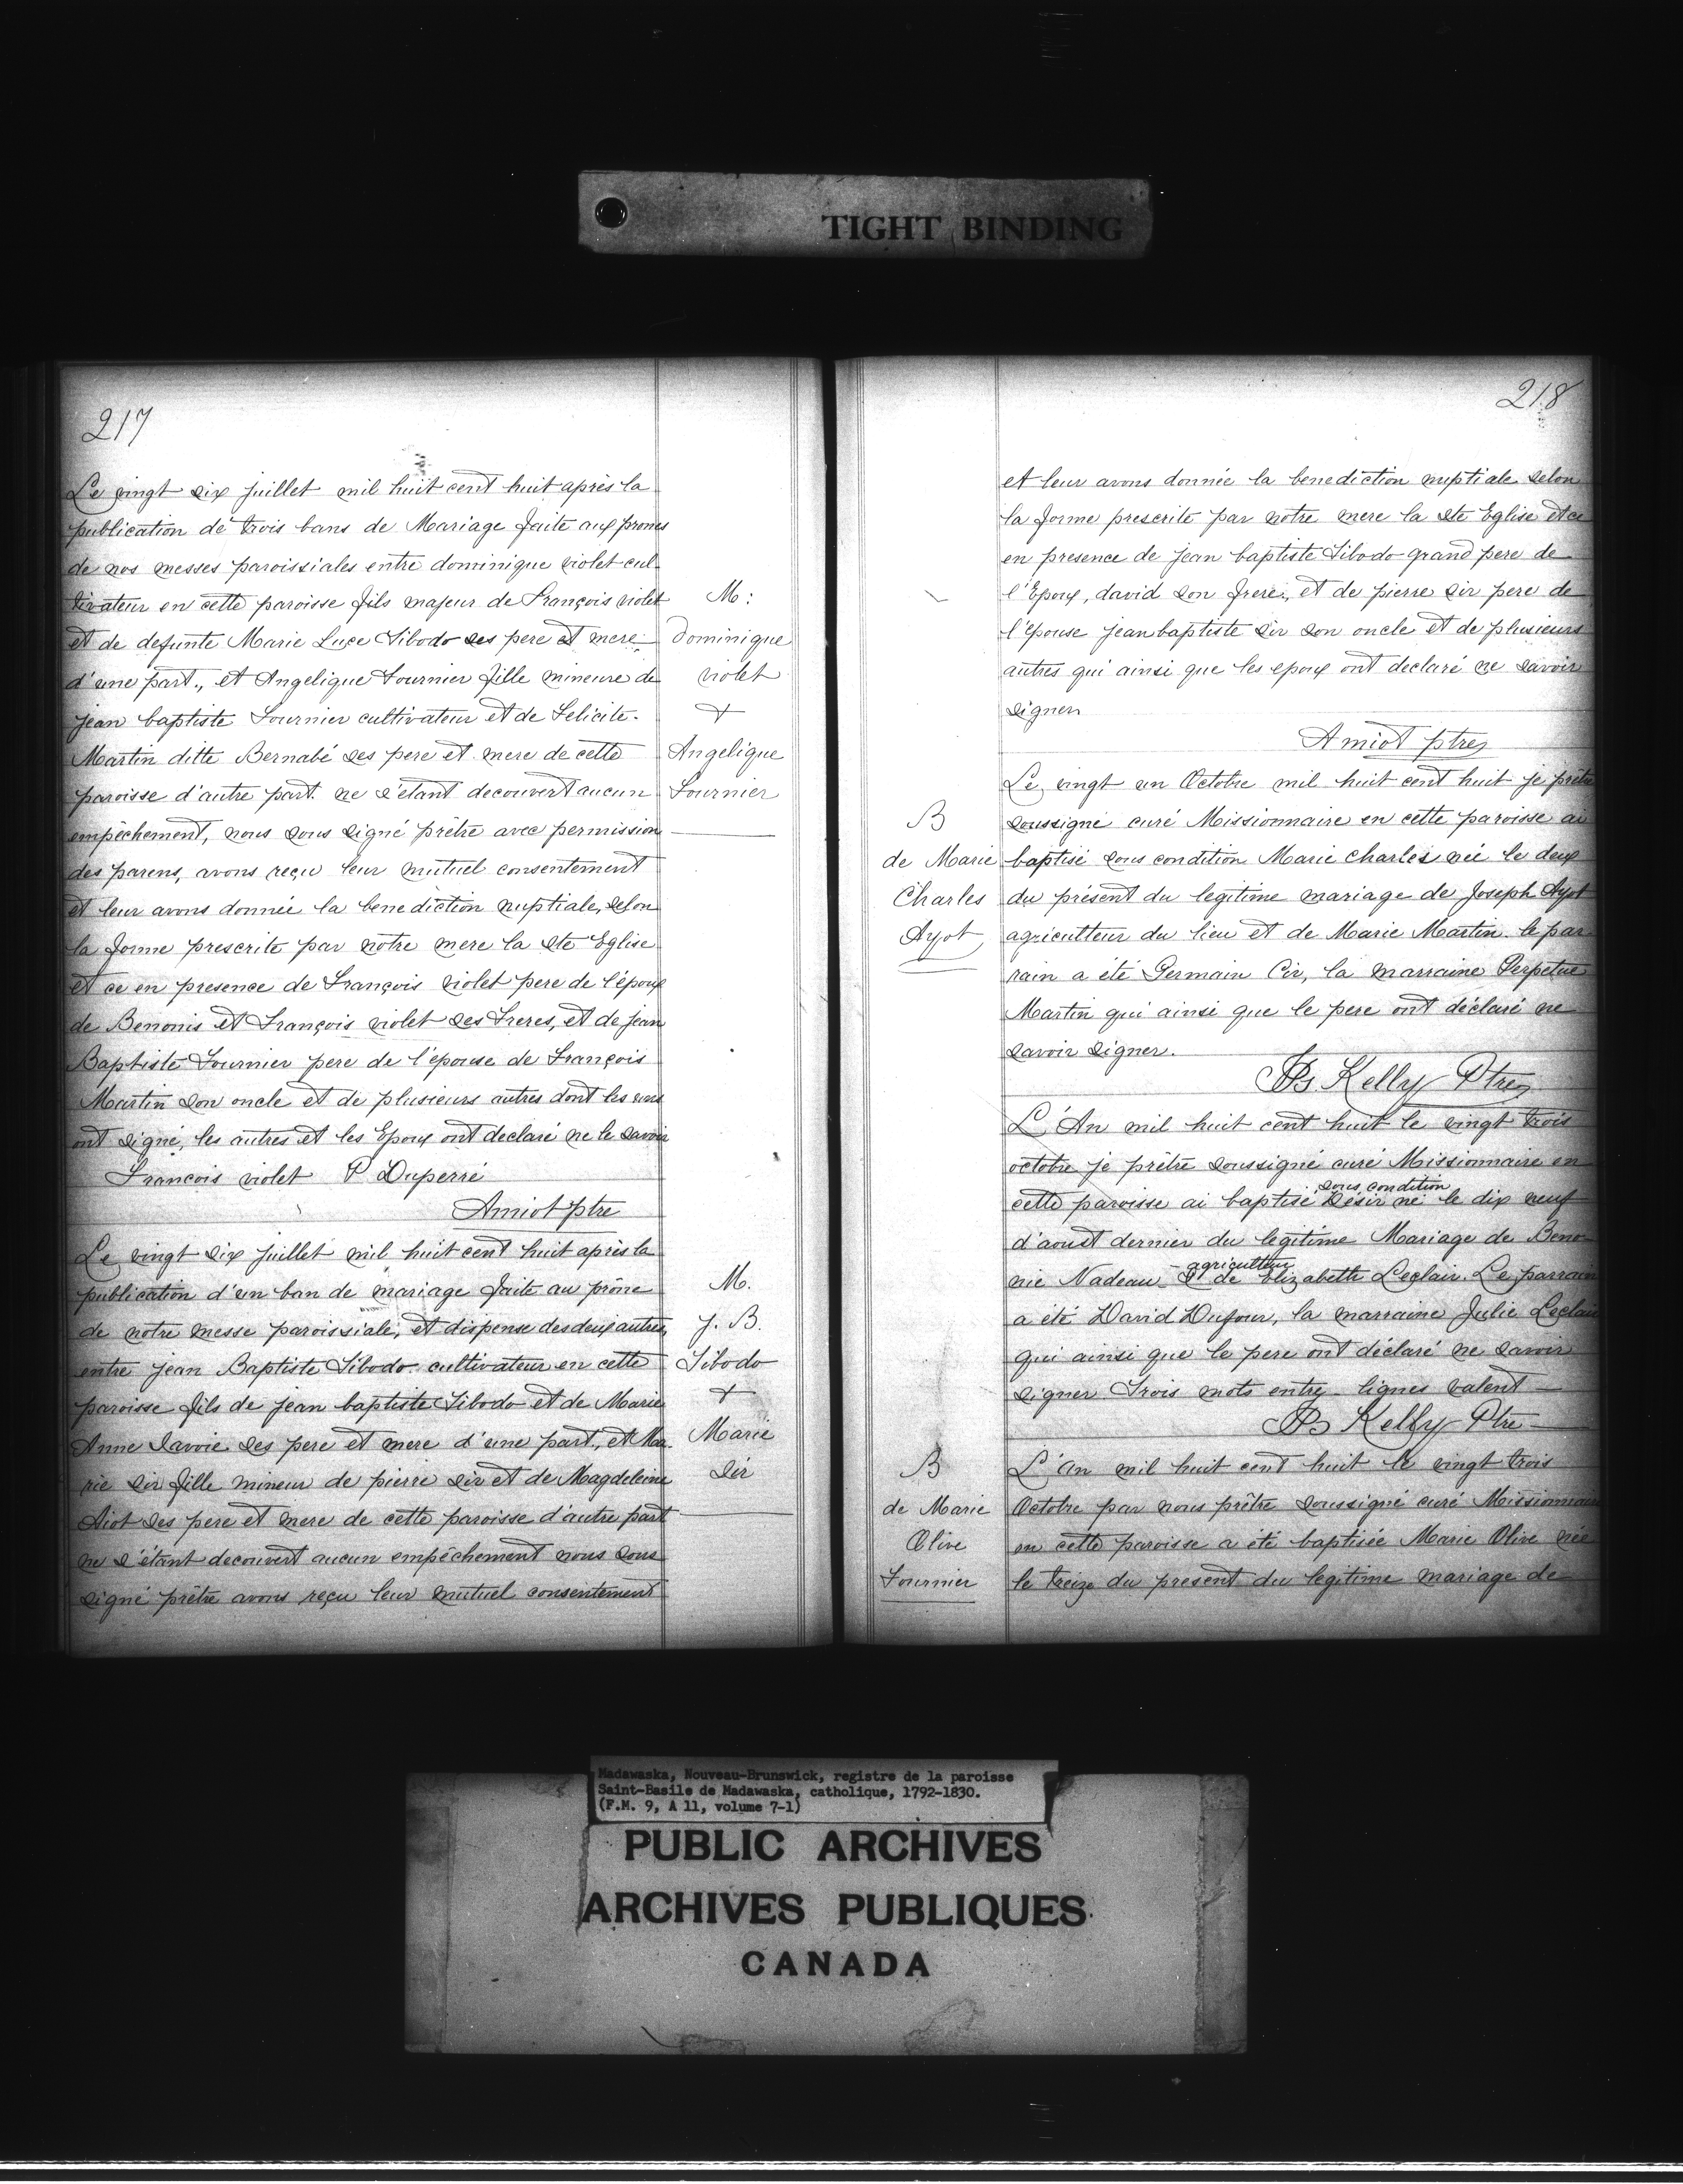 TIGHT BINDING
217
Le vingt six juillet mil huit cent huit après la
publication de trois bans de Mariage faite aux prones
de nos messes paroissiales entre dominique violet cul-
tivateur en cette paroisse fils majeur de François violet
et de defunte Marie Luce Tibodo ses pere et mere
d'une part., et Angelique Fournier fille mineure de
jean baptiste Fournier cultivateur et de Felicite.
Martin ditte Bernabé ses pere et mere de cette
paroisse d'autre part. ne s'étant decouvert aucun
empêchement, nous sous signé prêtre avec permission
des parens, avons reçu leur mutuel consentement
et leur avons donnée la benediction nuptiale, selon
la forme prescrite par notre mere la Ste Eglise
et ce en presence de François violet pere de l'époux
de Benonis et François violet ses freres, et de jean
Baptiste Fournier pere de l'épouse de François
Martin son oncle et de plusieurs autres dont les uns
ont signé, les autres et les Epoux ont declaré ne le savoir
Francois violet P Duperré
Amiot ptre
M:
Dominique
violet
+
Angelique
Fournier
Le vingt six juillet mil huit cent huit après la
publication d'un ban de mariage faite au prône
de notre messe paroissiale, et dispense des deux autres,
entre jean Baptiste Tibodo cultivateur en cette
paroisse fils de jean baptiste Tibodo et de Marie
Anne Savoie ses pere et mere d'une part., et Ma-
rie Sir fille mineur de pierre Sir et de Magdeleine
Aiot ses pere et mere de cette paroisse d'autre part
ne s'étant decouvert aucun empêchement nous sous
signé prêtre avons reçu leur mutuel consentement
M.
J. B.
Tibodo
+
Marie
Sir
218
et leur avons donnée la benediction nuptiale selon
la forme prescrite par notre mere la Ste Eglise et ce
en presence de jean baptiste Tibodo grand pere de
l'Epoux, david son frere, et de pierre Sir pere de
l'épouse jean baptiste Sir son oncle et de plusieurs
autres qui ainsi que les epoux ont declaré ne savoir
signer
Amiot ptre
B
de Marie
Charles
Ayot
Le vingt un Octobre mil huit cent huit je prêtre
soussigné curé Missionnaire en cette paroisse ai
baptisé sous condition Marie Charles née le deux
du présent du legitime mariage de Joseph Ayot
agriculteur du lieu et de Marie Martin. le par
rain a été Germain Cir, la marraine Perpetue
Martin qui ainsi que le pere ont déclaré ne
savoir signer.
JBs Kelly Ptre
L'An mil huit cent huit le vingt trois
octobre je prêtre soussigné curé Missionnaire en
sous condition
cette paroisse ai baptisé Désir né le dix neuf
d'aoust dernier du legitime Mariage de Beno-
agriculteur
nie Nadeau & de Elizabette Leclair. Le parrain
a été David Dufour, la marraine Julie Leclair
qui ainsi que le pere ont déclaré ne savoir
signer Trois mots entre-lignes valent
JBs Kelly Ptre
B
de Marie
Olive
Fournier
L'An mil huit cent huit le vingt trois
Octobre par nous prêtre soussigné curé Missionnaire
en cette paroisse a été baptisée Marie Olive née
le treize du present du legitime mariage de
Madawaska, Nouveau-Brunswick, registre de la paroisse
Saint-Basile de Madawaska, catholique, 1792-1830.
(F.M. 9, A 11, volume 7-1)
PUBLIC ARCHIVES
ARCHIVES PUBLIQUES
CANADA